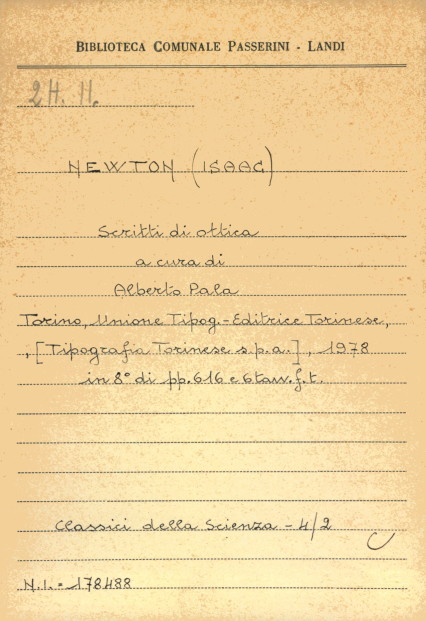 BIBLIOTECA COMUNALE PASSERINI - LANDI
2H. 11.
NEWTON (ISAAC)
Scritti di ottica
a cura di
Alberto Pala
Torino, Unione Tipog.-Editrice Torinese,
, [Tipografia Torinese s.p.a.], 1978
in 8° di pp. 616 e 6 tav. f. t.
Classici della Scienza - 4/2
N. I. = 178488